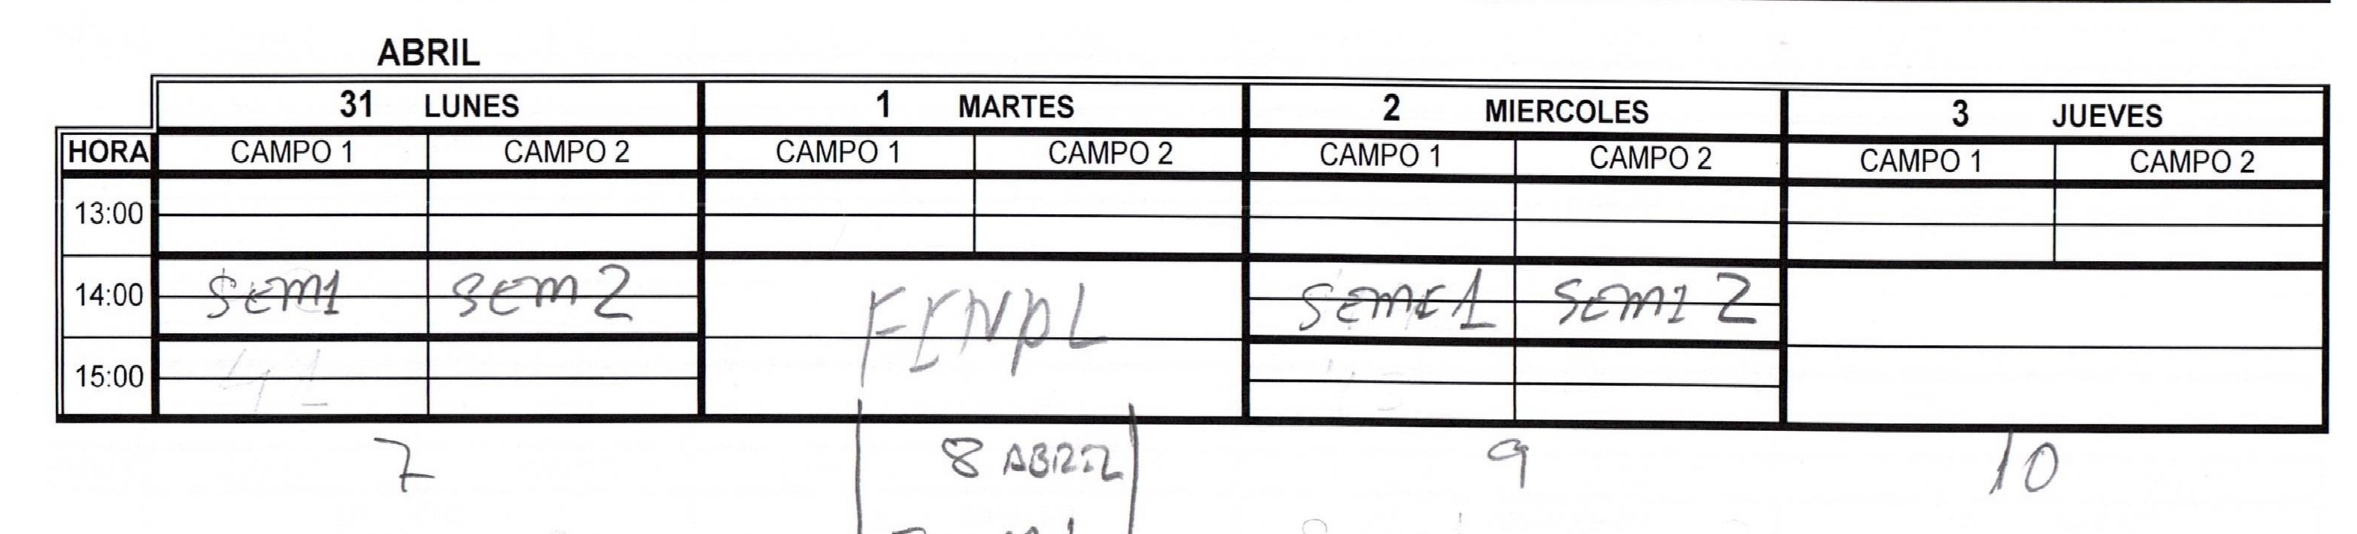 ABRIL
31 LUNES 1 MARTES 2 MIERCOLES 3 JUEVES
HORA CAMPO 1 CAMPO 2 CAMPO 1 CAMPO 2 CAMPO 1 CAMPO 2 CAMPO 1 CAMPO 2
13:00
14:00 SEM1 SEM 2 FINAL SEMI 1 SEMI 2
15:00
7 8 ABRIL 9 10